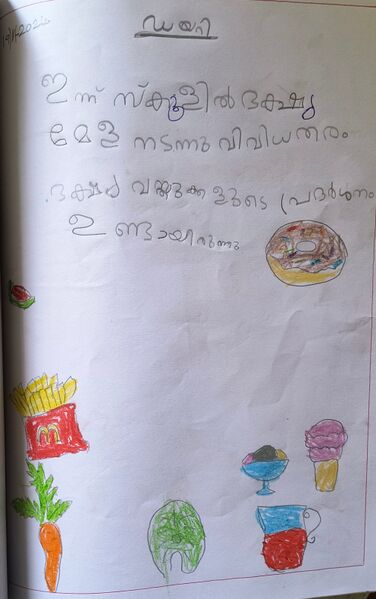 ഡയറി
ഇന്ന് സ്കൂളിൽ ഭക്ഷ്യ
മേള നടന്നു വിവിധതരം
ഭക്ഷ്യ വസ്തുക്കളുടെ പ്രദർശനം
ഉണ്ടായിരുന്നു
M